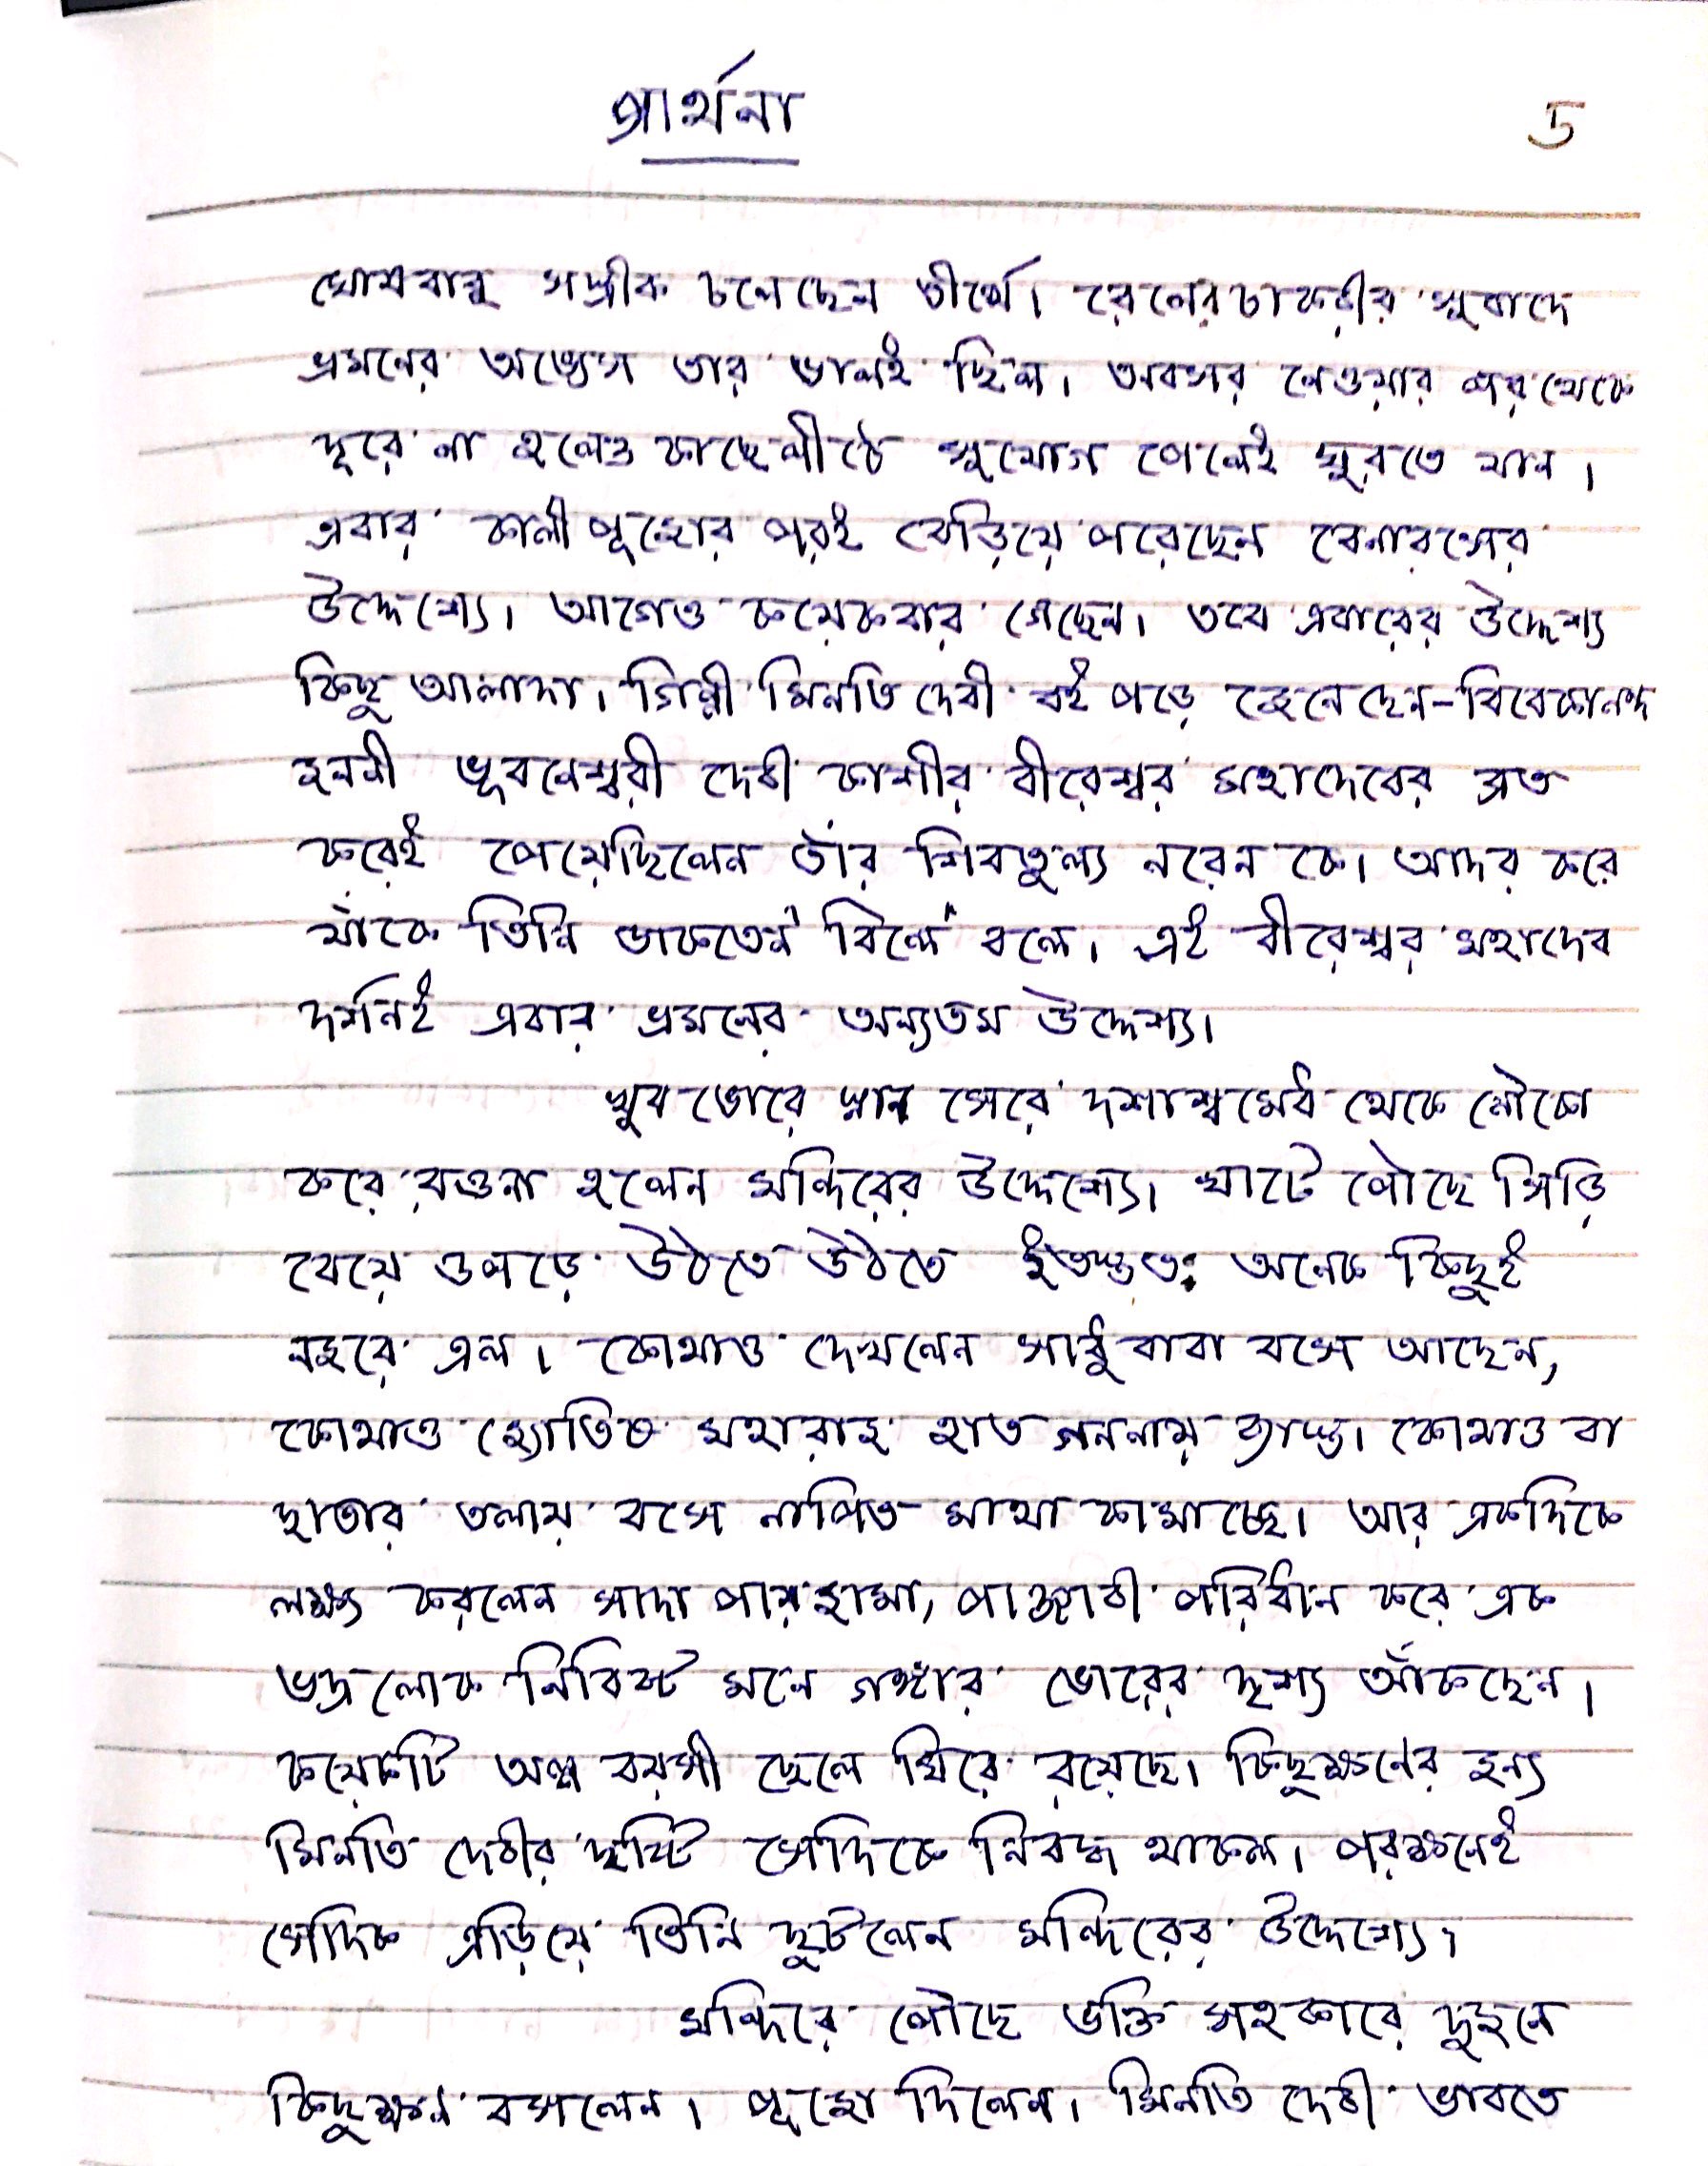 প্রার্থনা
5
ঘোষবাবু সস্ত্রীক চলেছেন তীর্থে। রেলের চাকরীর সুবাদে
ভ্রমনের অভ্যেস তার ভালই ছিল। অবসর নেওয়ার পর থেকে
দূরে না হলেও কাছেপীঠে সুযোগ পেলেই ঘুরতে যান।
এবার কালীপূজোর পরই বেড়িয়ে পরেছেন বেনারসের
উদ্দেশ্যে। আগেও কয়েকবার গেছেন। তবে এবারের উদ্দেশ্য
কিছু আলাদা। গিন্নী মিনতি দেবী বই পড়ে জেনেছেন-বিবেকানন্দ
জননী ভূবনেশ্বরী দেবী কাশীর বীরেশ্বর মহাদেবের ব্রত
করেই পেয়েছিলেন তাঁর শিবতুল্য নরেন কে। আদর করে
যাঁকে তিনি ডাকতেন 'বিলে' বলে। এই বীরেশ্বর মহাদেব
দর্শনই এবার ভ্রমনের অন্যতম উদ্দেশ্য।
খুব ভোরে স্নান সেরে দশাশ্বমেধ থেকে নৌকো
করে রওনা হলেন মন্দিরের উদ্দেশ্যে। ঘাটে পৌছে সিড়ি
বেয়ে ওপড়ে উঠতে উঠতে ইতস্তত: অনেক কিছুই
নজরে এল। কোথাও দেখলেন সাধু বাবা বসে আছেন,
কোথাও জ্যোতিষ মহারাজ হাত গননায় ব্যস্ত। কোথাও বা
ছাতার তলায় বসে নাপিত মাথা কামাচ্ছে। আর একদিকে
লক্ষ্য করলেন সাদা পায়জামা, পাঞ্জাবী পরিধান করে এক
ভদ্রলোক নিবিষ্ট মনে গঙ্গার ভোরের দৃশ্য আঁকছেন।
কয়েকটি অল্প বয়সী ছেলে ঘিরে রয়েছে। কিছুক্ষনের জন্য
মিনতি দেবীর দৃষ্টি সেদিকে নিবদ্ধ থাকল। পরক্ষনেই
সেদিক এড়িয়ে তিনি ছুটলেন মন্দিরের উদ্দেশ্যে।
মন্দিরে পৌছে ভক্তি সহকারে দুজনে
কিছুক্ষন বসলেন। পূজো দিলেন। মিনতি দেবী ভাবতে